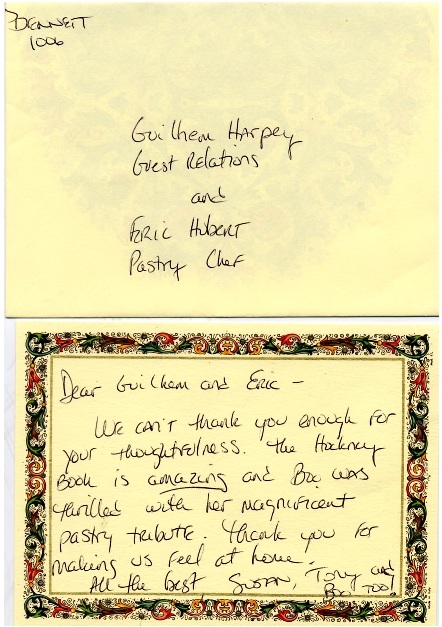 BENNETT
1006
Guilhem Harpey
Guest Relations
and
Eric Hubert
Pastry Chef
Dear Guilhem and Eric –
We can't thank you enough for
your thoughtfulness. The Hockney
Book is amazing and Boo was
thrilled with her magnificent
pastry tribute. Thank you for
making us feel at home.
All the best, Susan, Tony and
Boo too!